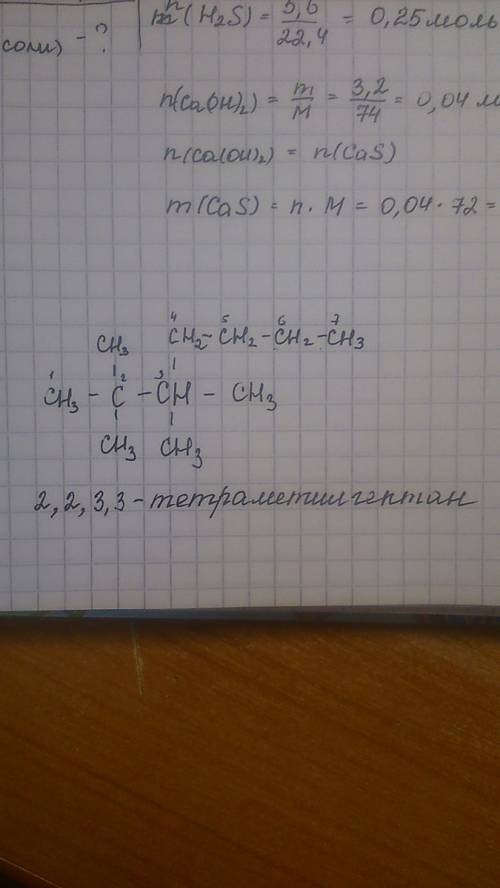 n(H₂S) = 5,6/22,4 = 0,25 моль
соли) - ?
n(Ca(OH)₂) = m/M = 3,2/74 = 0,04 м
n(Ca(OH)₂) = n(CaS)
m(CaS) = n · M = 0,04 · 72 =
4 5 6 7
CH₃ CH₂ - CH₂ - CH₂ - CH₃
1 2 3
CH₃ - C - CH - CH₃
CH₃ CH₃
2,2,3,3 - тетраметилгептан